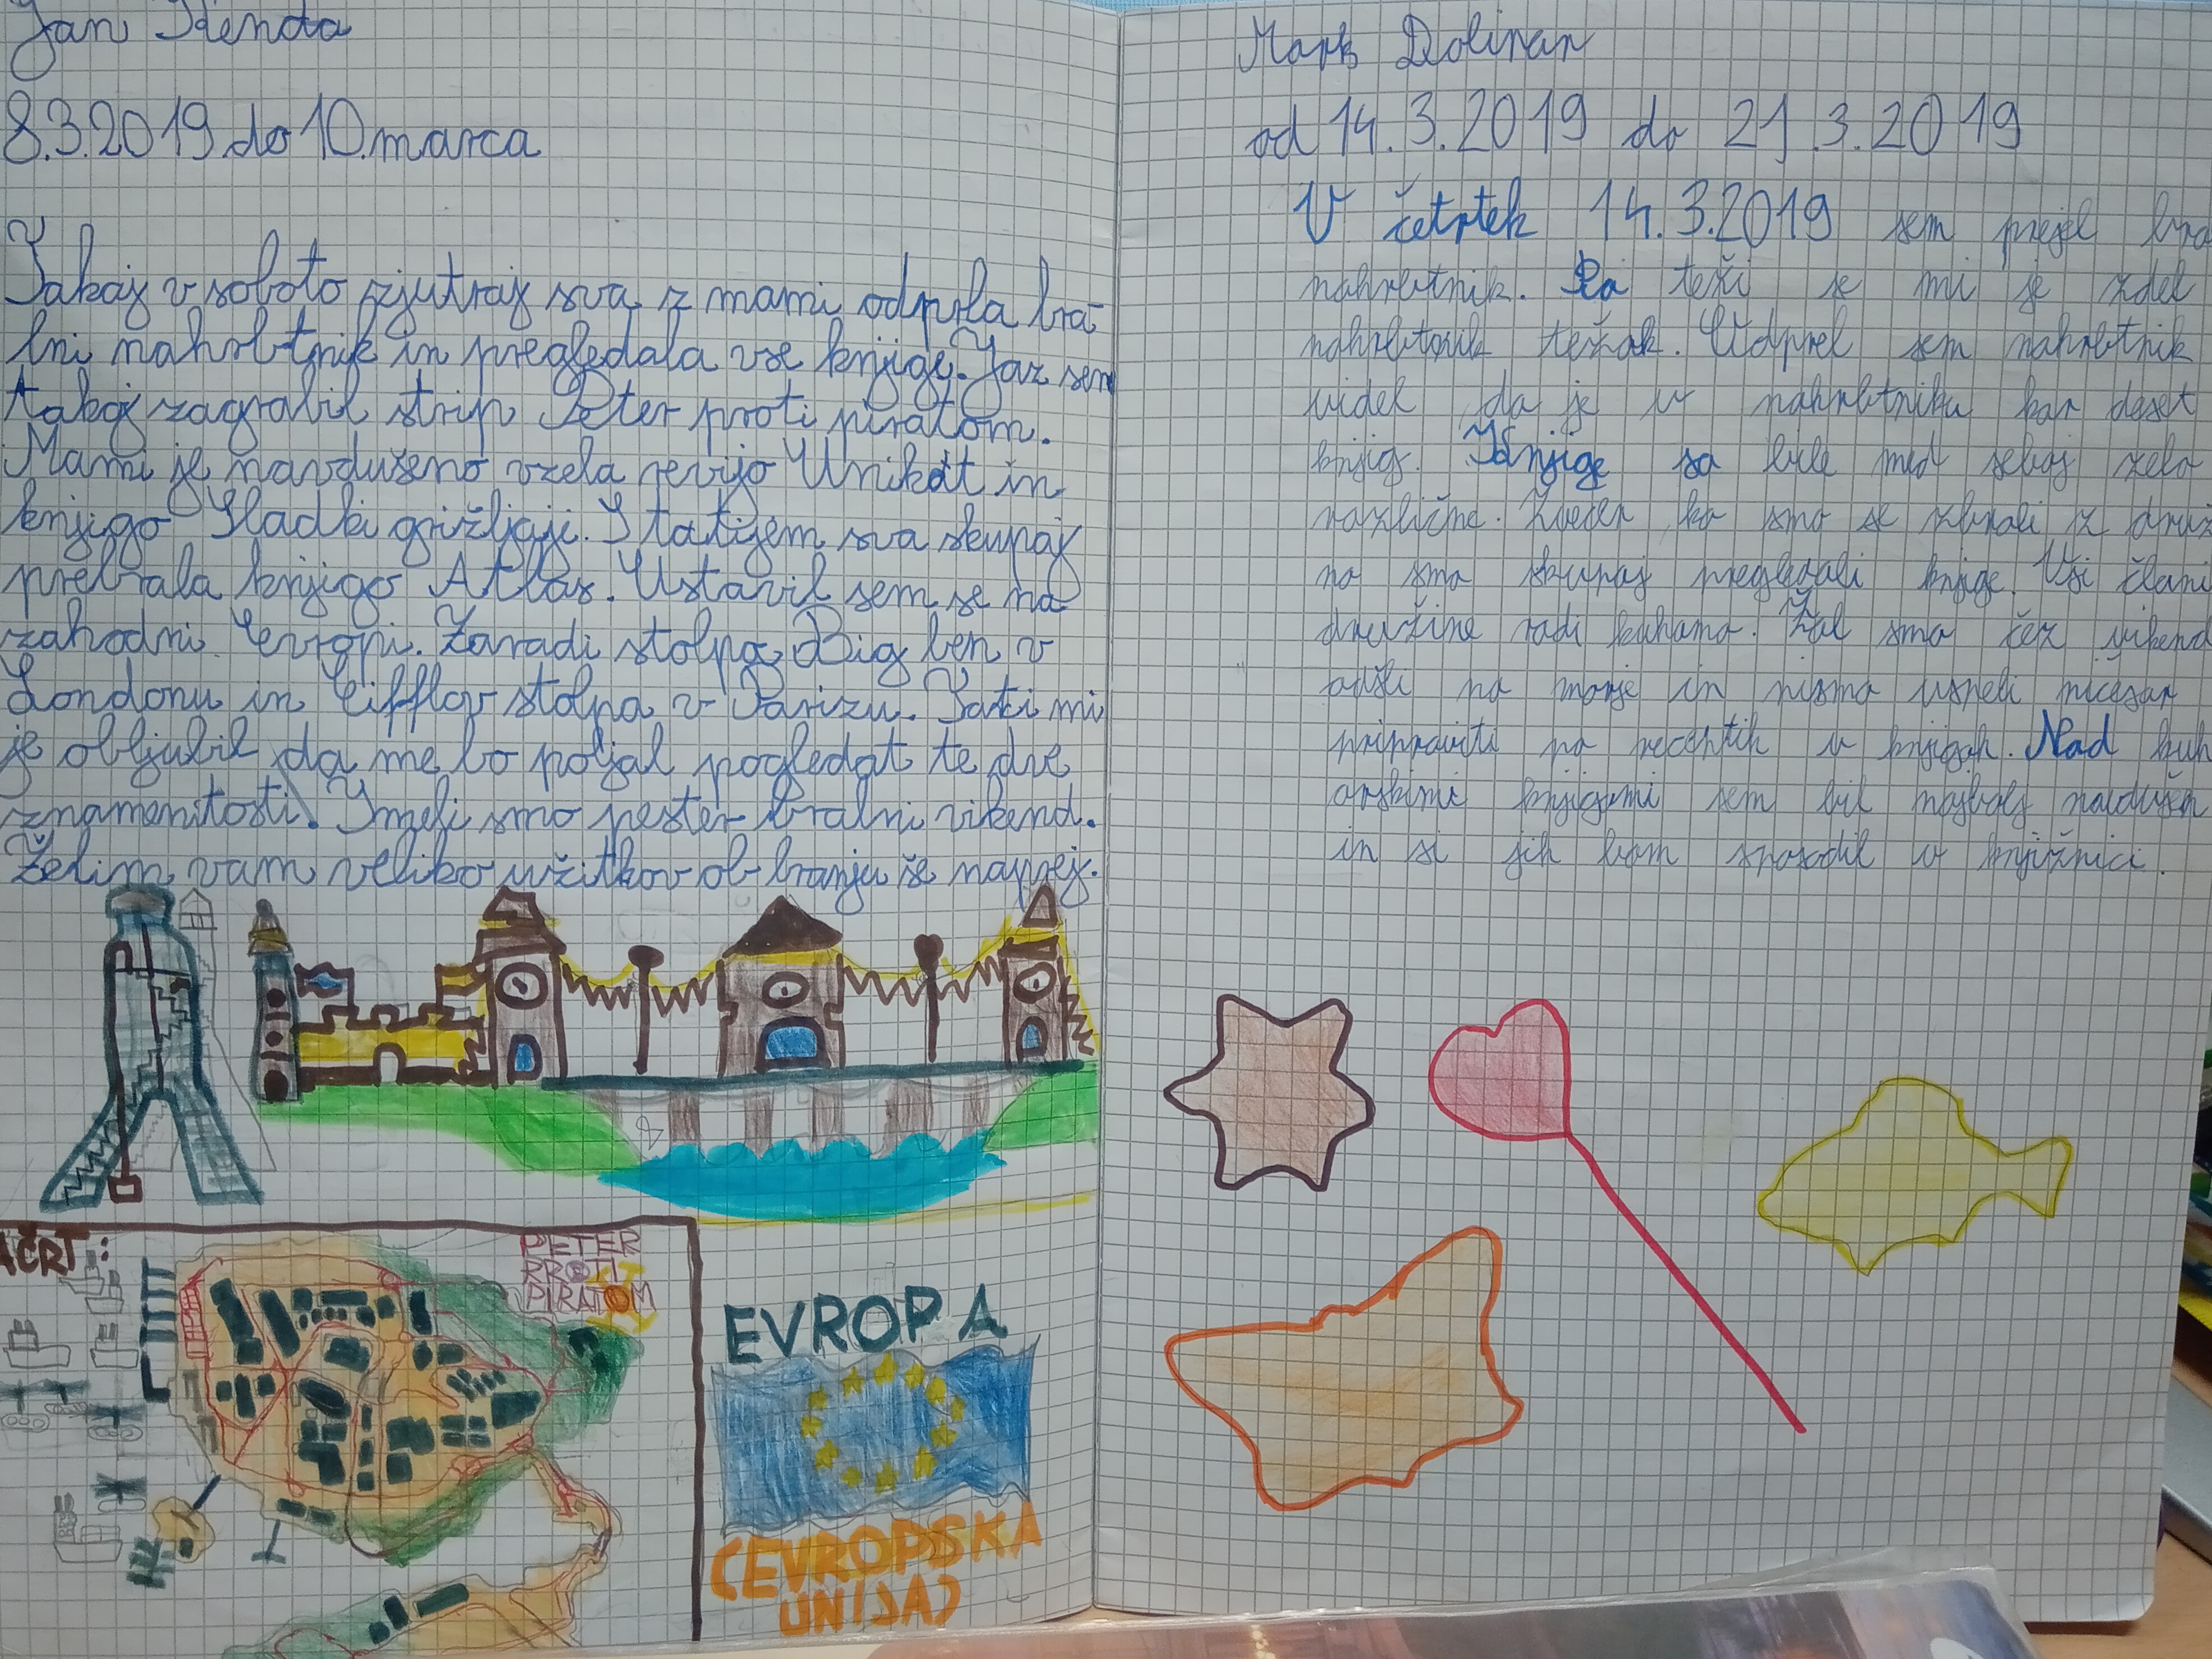 Jan
8.3.2019 do 10. marca
Takoj v soboto zjutraj sva z mami odprla bra-
lni nahrbtnik in pregledala vse knjige. Jaz sem
takoj zagrabil strip Peter proti piratom.
Mami je navdušeno vzela revijo Unikat in
knjigo Sladki grižljaji. S tatijem sva skupaj
prebrala knjigo Atlas. Ustavil sem se na
zahodni Evropi. Zaradi stolpa Big ben v
Londonu in Eifflov stolpa v Parizu. Tati mi
je obljubil da me bo poljal pogledat te dve
znamenitosti. Imeli smo pester bralni vikend.
Želim vam veliko užitkov ob branju še naprej.
AČRT:
PETER
PROTI
PIRATOM
EVROPA
(EVROPSKA
UNIJA)
Mark Dolinar
od 14.3.2019 do 21.3.2019
V četrtek 14.3.2019 sem prejel bra
nahrbtnik. Po teži se mi je zdel
nahrbtnik težak. Odprel sem nahrbtnik
videl da je v nahrbtniku kar deset
knjig. Knjige so bile med seboj zelo
različne. Zvečer ko smo se zbrali z druž
no smo skupaj pregledali knjige. Vsi člani
družine radi kuhamo. Žal smo čez vikend
odšli na morje in nismo uspeli ničesar
pripraviti po receptih v knjigah. Nad kuh
arskimi knjigami sem bil najbolj navdušen
in si jih bom sposodil v knjižnici.